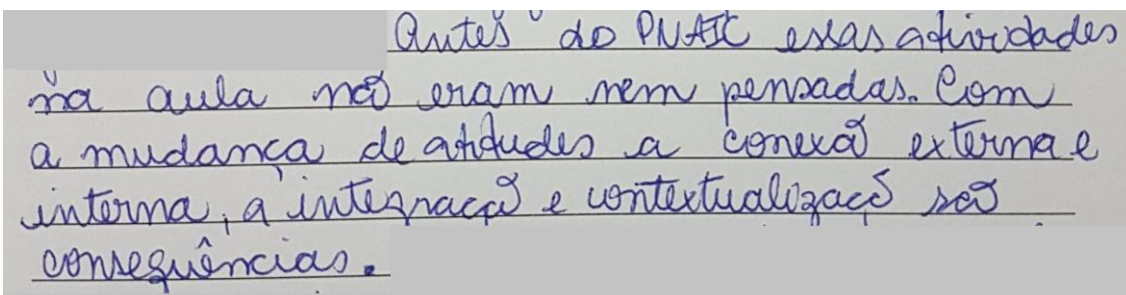 Antes do PNAIC essas atividades
na aula não eram nem pensadas. Com
a mudança de atitudes a conexão externa e
interna, a integração e contextualização são
consequências.